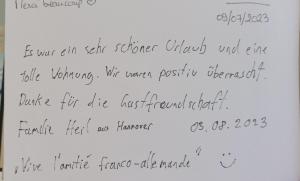 Merci beaucoup ☺
09/07/2023
Es war ein sehr schöner Urlaub und eine
tolle Wohnung. Wir waren positiv überrascht.
Danke für die Gastfreundschaft.
Familie Heil aus Hannover 03.08.2023
"Vive l'amitié franco-allemande" :)